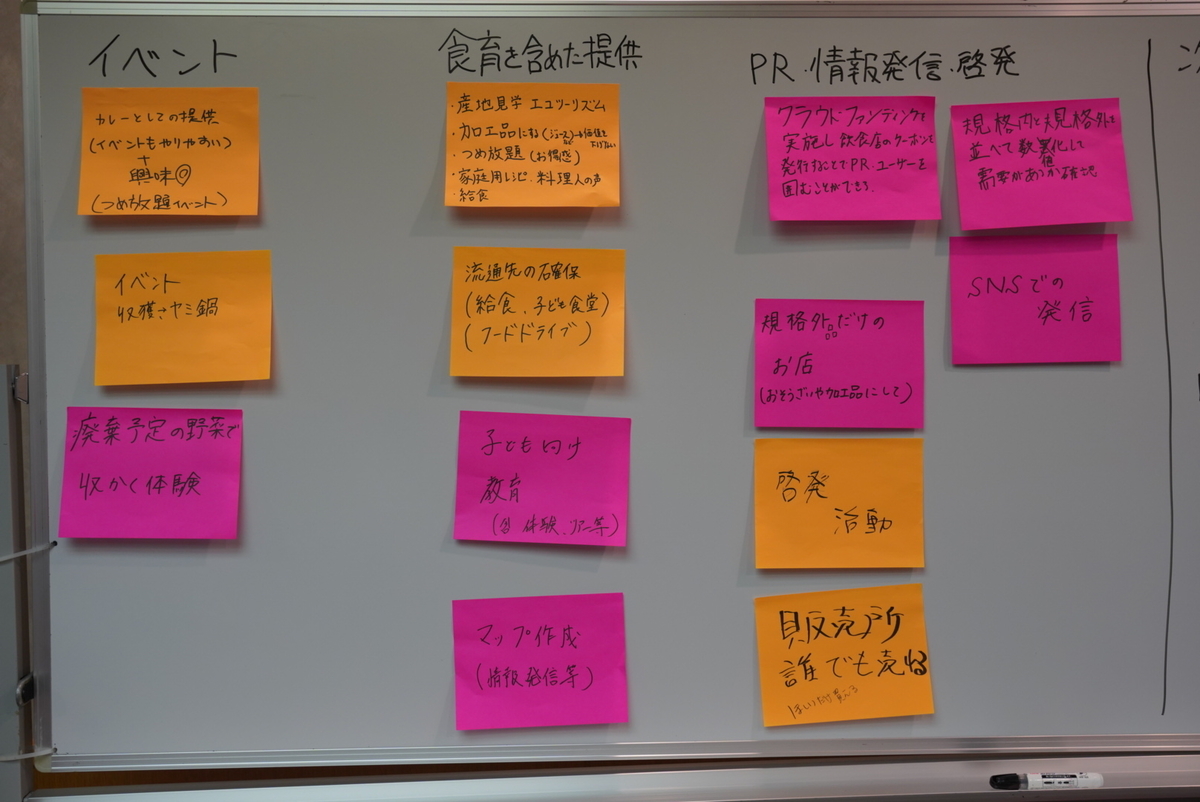 イベント
カレーとしての提供
(イベントもやりやすい)
+
興味◎
(つめ放題イベント)
イベント
収獲→ヤミ鍋
廃棄予定の野菜で
収かく体験
食育を含めた提供
・産地見学 エコツーリズム
・加工品にする(ジュースなど)→価値を下げない
・つめ放題(お得感)
・家庭用レシピ・料理人の声
給食
流通先の確保
(給食、子ども食堂)
(フードドライブ)
子ども向け
教育
(体験、ツアー等)
マップ作成
(情報発信等)
PR・情報発信・啓発
クラウド・ファンディングを
実施し飲食店のクーポンを
発行することでPR・ユーザーを
囲むことができる.
規格内と規格外を
並べて数値化して
需要があるか確認
SNSでの
発信
規格外品だけの
お店
(おそうざいや加工品にして)
啓発
活動
販売所
誰でも売れる
次